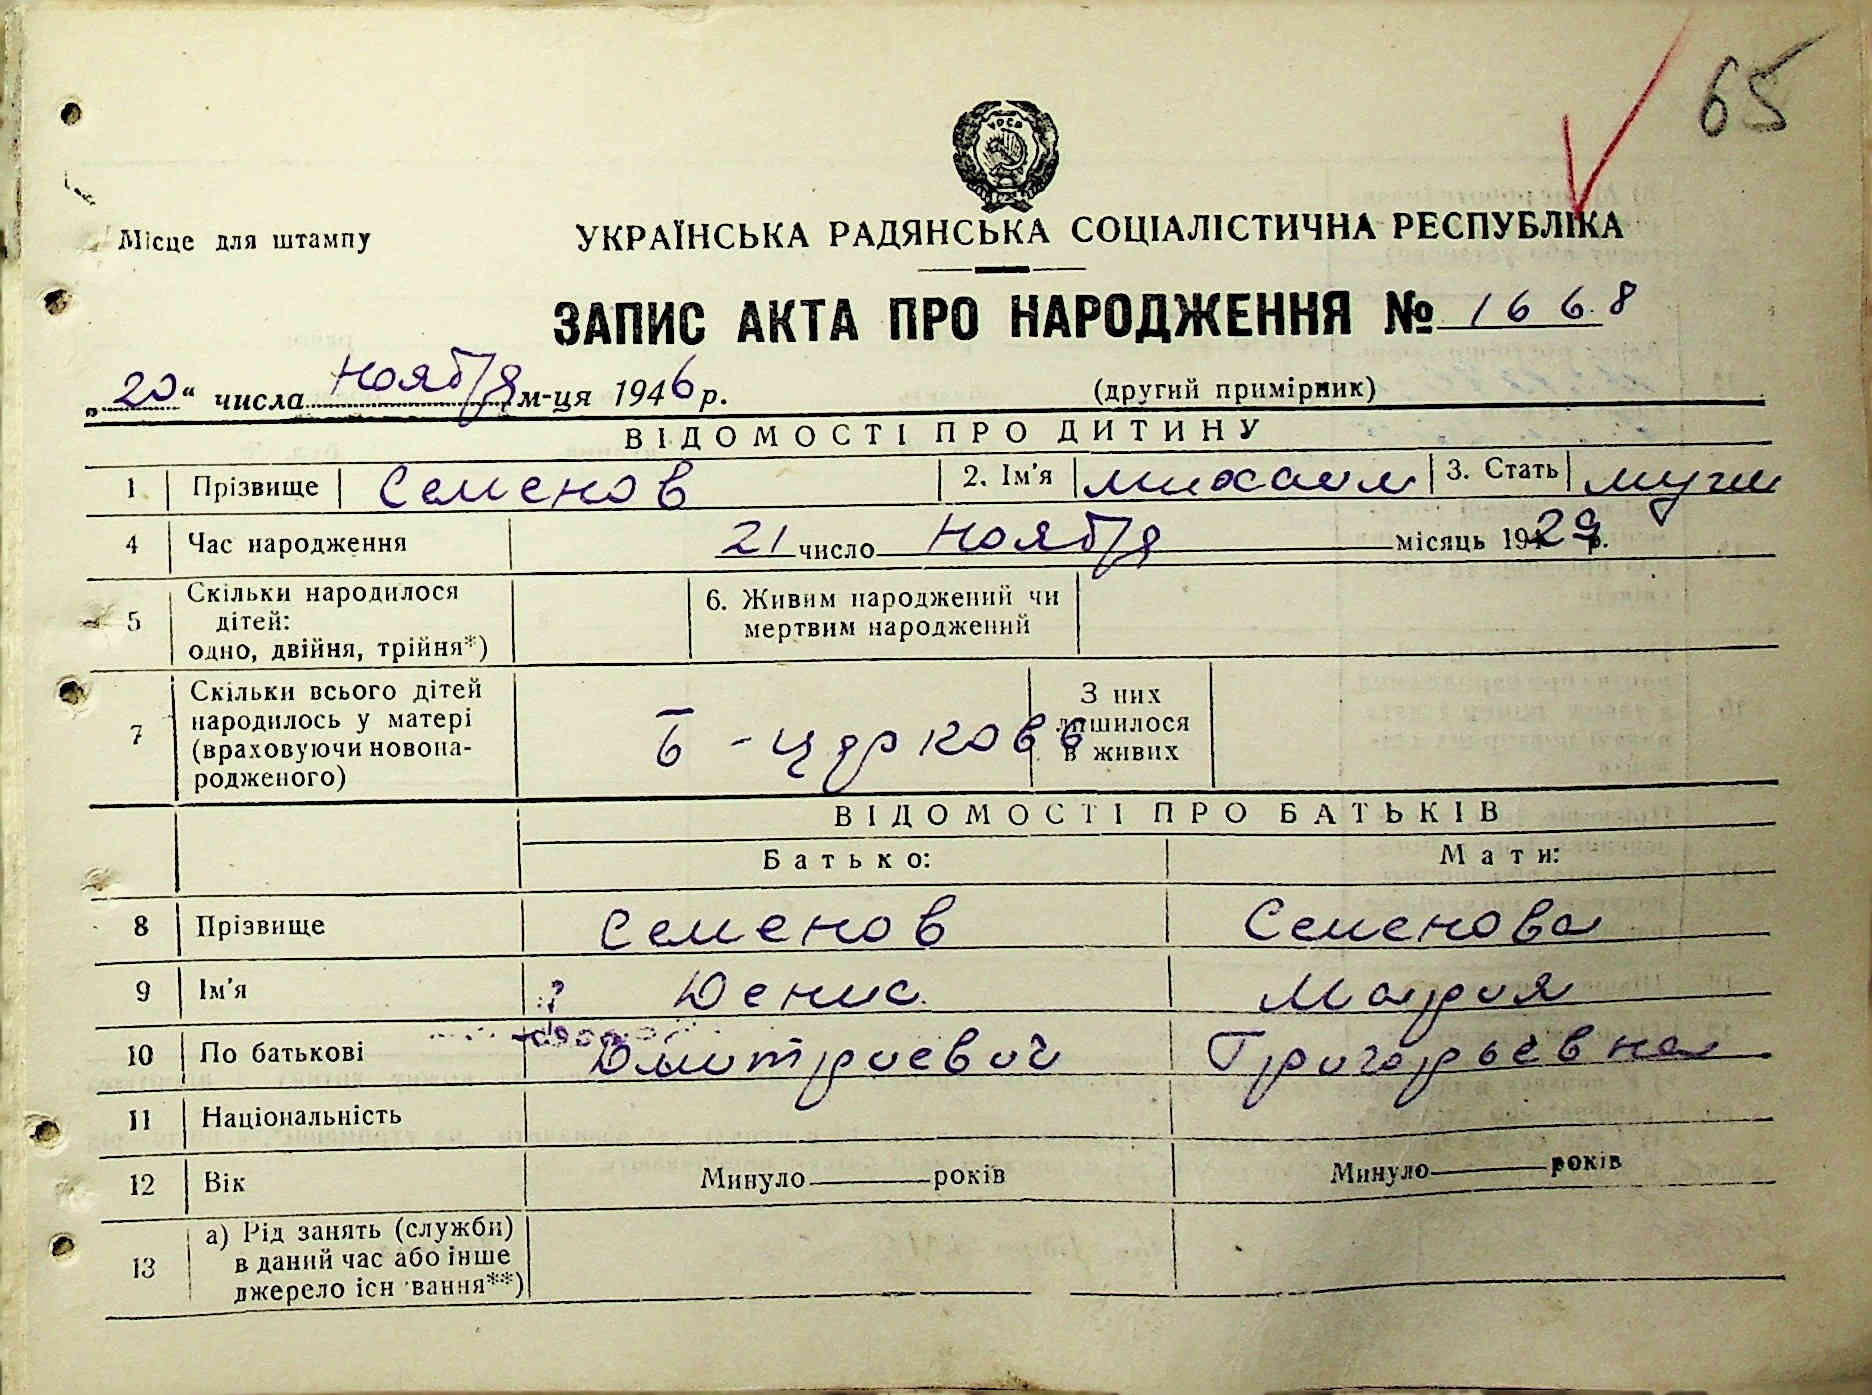 65
УРСР
Місце для штампу
УКРАЇНСЬКА РАДЯНСЬКА СОЦІАЛІСТИЧНА РЕСПУБЛІКА
ЗАПИС АКТА ПРО НАРОДЖЕННЯ № 1668
„20“ числа ноября м-ця 1946 р.
(другий примірник)
ВІДОМОСТІ ПРО ДИТИНУ
1 Прізвище Семенов 2. Ім'я михаил 3. Стать мужи
4 Час народження 21 число ноября місяць 1929 р.
5 Скільки народилося дітей: одно, двійня, трійня*) 6. Живим народжений чи мертвим народжений
7 Скільки всього дітей народилось у матері (враховуючи новона-родженого) Б-церковь З них лишилося в живих
ВІДОМОСТІ ПРО БАТЬКІВ
Батько: Мати:
8 Прізвище Семенов Семенова
9 Ім'я ? Денис Мария
10 По батькові Дмитриевич Григорьевна
11 Національність
12 Вік Минуло років Минуло років
13 а) Рід занять (служби) в даний час або інше джерело існ вання**)